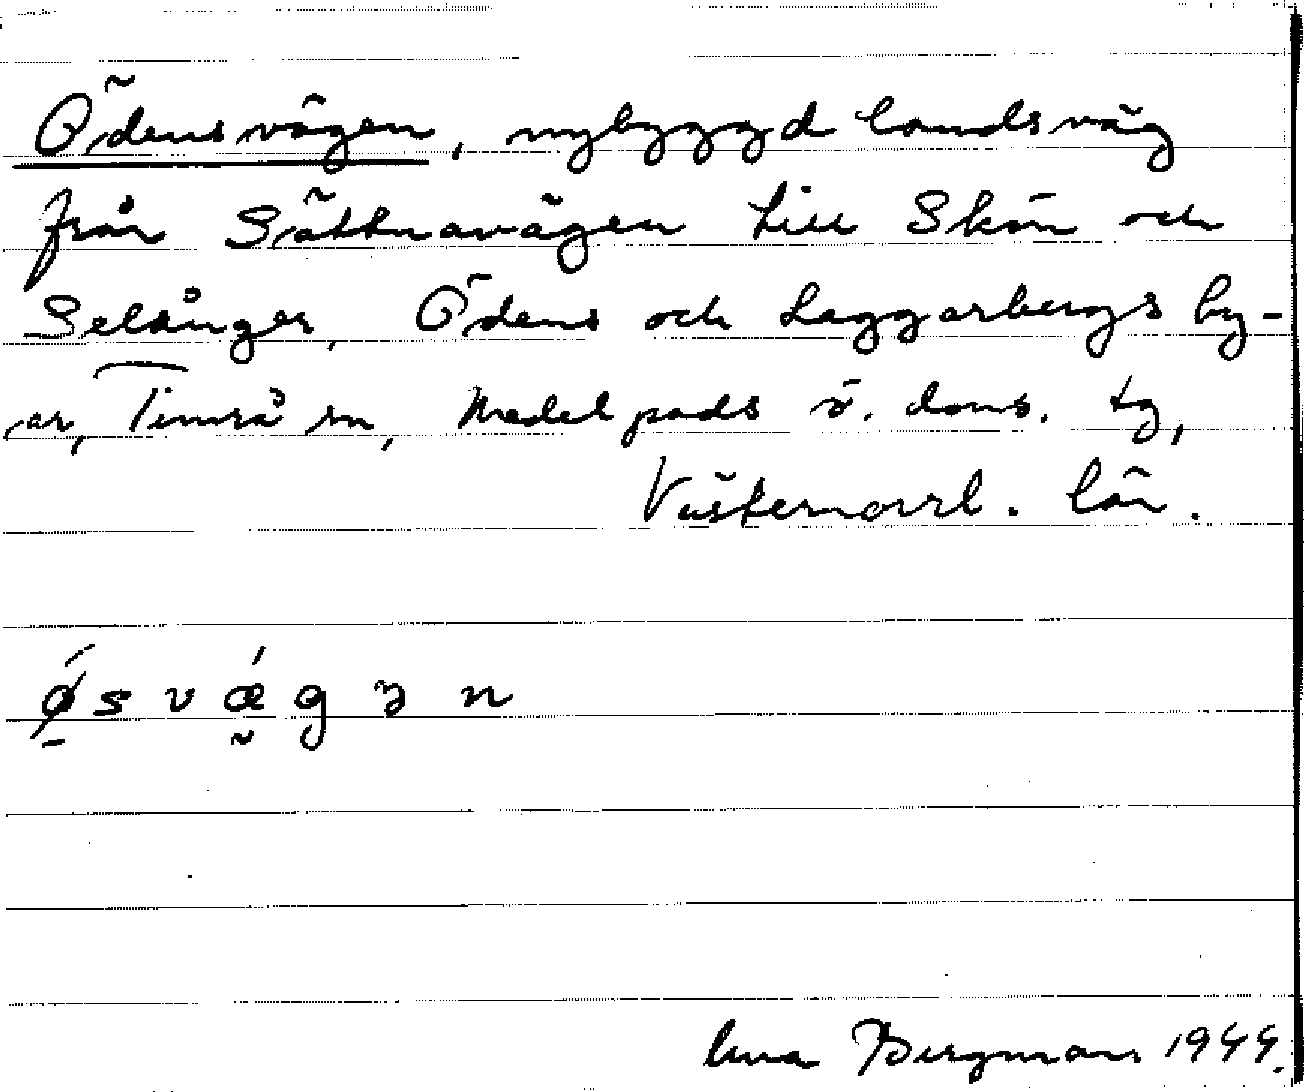 Ödensvägen, nybyggd landsväg
från Sättnavägen till Skön och
Selånger, Ödens och Laggarbergs by-
ar, Timrå sn, Medelpads ö. doms. tg,
Västernorrl. län.
ǿsvǽgən
Bergman 1944.